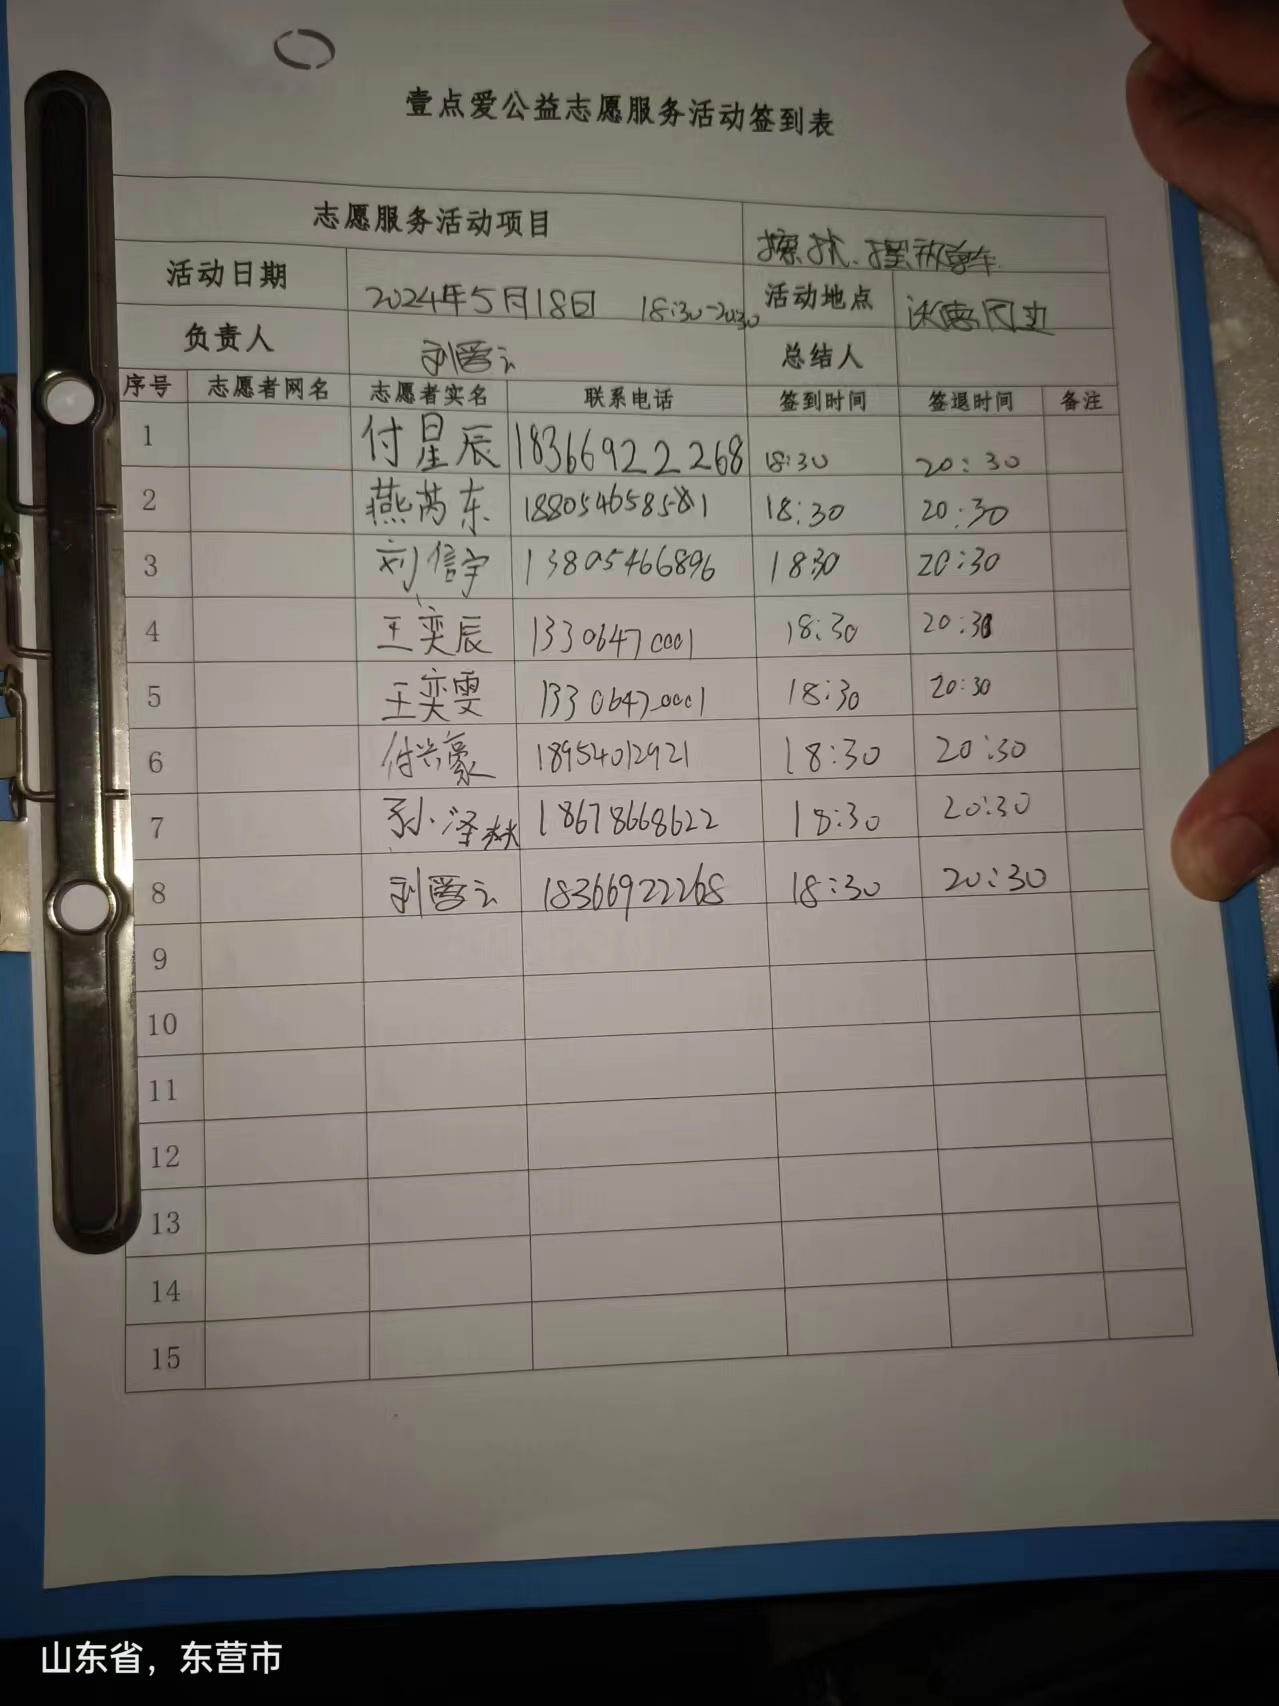 壹点爱公益志愿服务活动签到表
志愿服务活动项目 擦扰、摆放单车
活动日期 2024年5月18日 18:30-20:30 活动地点 周边
负责人 总结人
序号 志愿者网名 志愿者实名 联系电话 签到时间 签退时间 备注
1 付星辰 18366922268 18:30 20:30
2 燕芮东 18:30 20:30
3 刘信宇 13805466896 1830 20:30
4 王奕辰 13306470001 18:30 20:30
5 王奕雯 13306470001 18:30 20:30
6 付兴豪 18954012921 18:30 20:30
7 孙泽 18678668622 18:30 20:30
8 18366922268 18:30 20:30
9
10
11
12
13
14
15
山东省，东营市